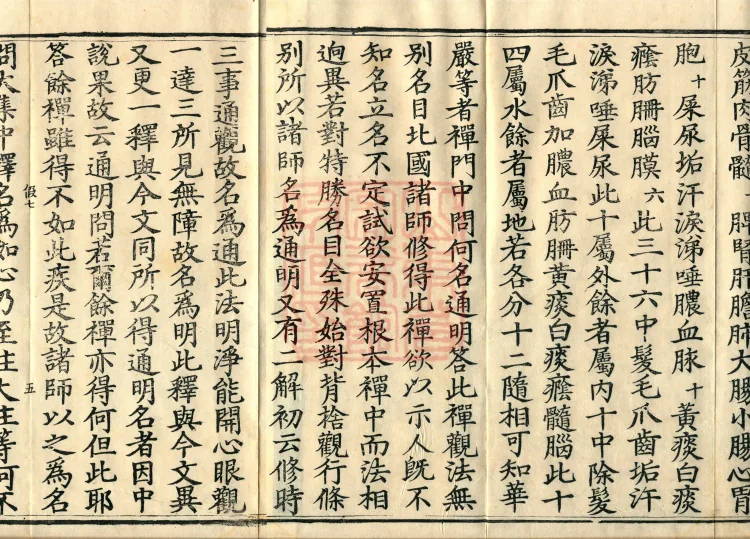 皮筋肉骨髓 脾腎肝膽肺大腸小腸心胃
胞十屎尿垢汗淚涕唾膿血脉十黃痰白痰
癊肪𦙱腦膜六此三十六中髮毛爪齒垢汗
淚涕唾屎尿此十屬外餘者屬内十中除髮
毛爪齒加膿血肪𦙱黃痰白痰癊髓腦此十
四屬水餘者屬地若各分十二隨相可知華
嚴等者禪門中問何名通明答此禪觀法無
別名目北國諸師修得此禪欲以示人旣不
知名立名不定試欲安置根本禪中而法相
逈異若對特勝名目全殊始對背捨觀行條
別所以諸師名爲通明又有二解初云修時
三事通觀故名爲通此法明淨能開心眼觀
一達三所見無障故名爲明此釋與今文異
又更一釋與今文同所以得通明名者因中
說果故云通明問若爾餘禪亦得何但此耶
答餘禪雖得不如此疾是故諸師以之爲名
假七 五
問大集中釋名爲如心乃至住大住等何不